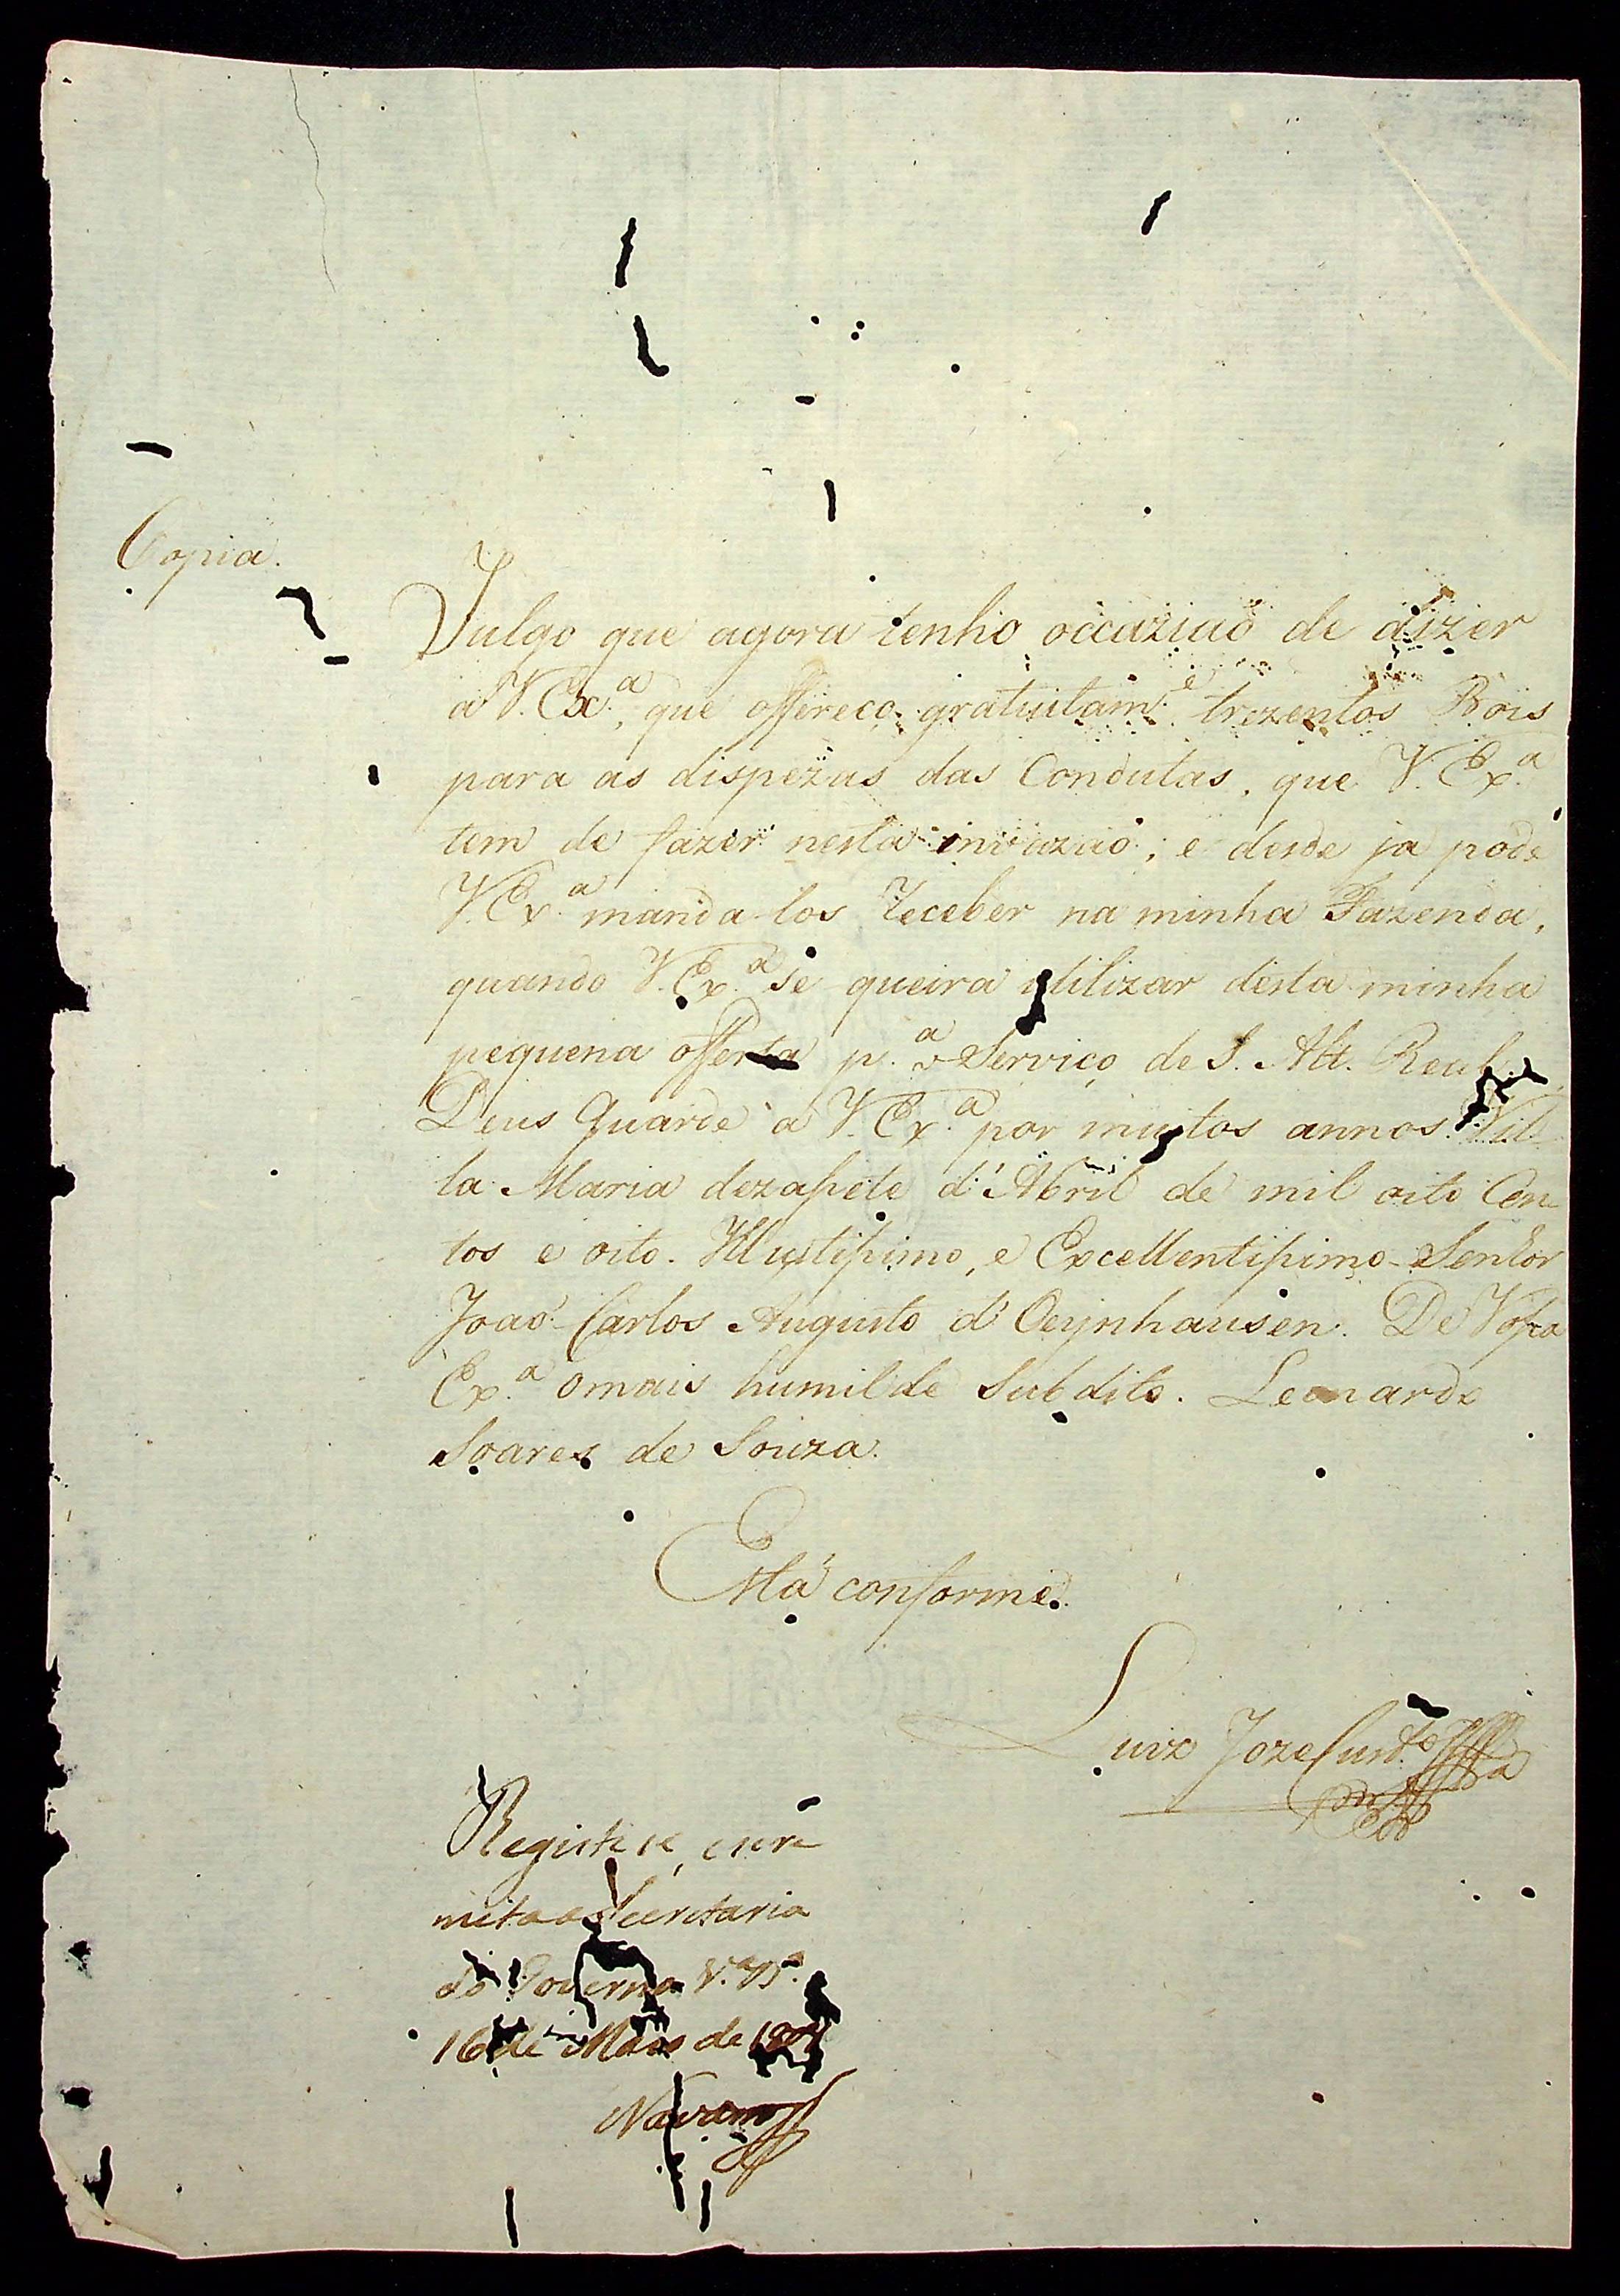 Copia.
Julgo que agora tenho occaziaõ de dizer
a V. Ex.ª, que offereço gratuitam.e trezentos Bois
para as dispezas das Condutas, que V. Ex.ª
tem de fazer nesta invazaõ; e desde ja pode
V. Ex.ª manda-los receber na minha Fazenda,
quando V. Ex.ª se queira utilizar desta minha
pequena offerta p.ª o Serviço de S. Alt. Real.
Deus Guarde a V. Ex.ª por muitos annos. Vil-
la Maria dezasete d'Abril de mil oito Cen-
tos e oito. Illustissimo, e Excellentissimo Senhor
Joaõ Carlos Augusto d'Oeynhausen. De Vossa
Ex.ª o mais humilde Subdito. Leonardo
Soares de Souza.
Está conforme.
Luiz Joze Cust.o
Registese, e se re
meta a Secretaria
do Governo V.ª B.ª
16 de Maio de
Navarro